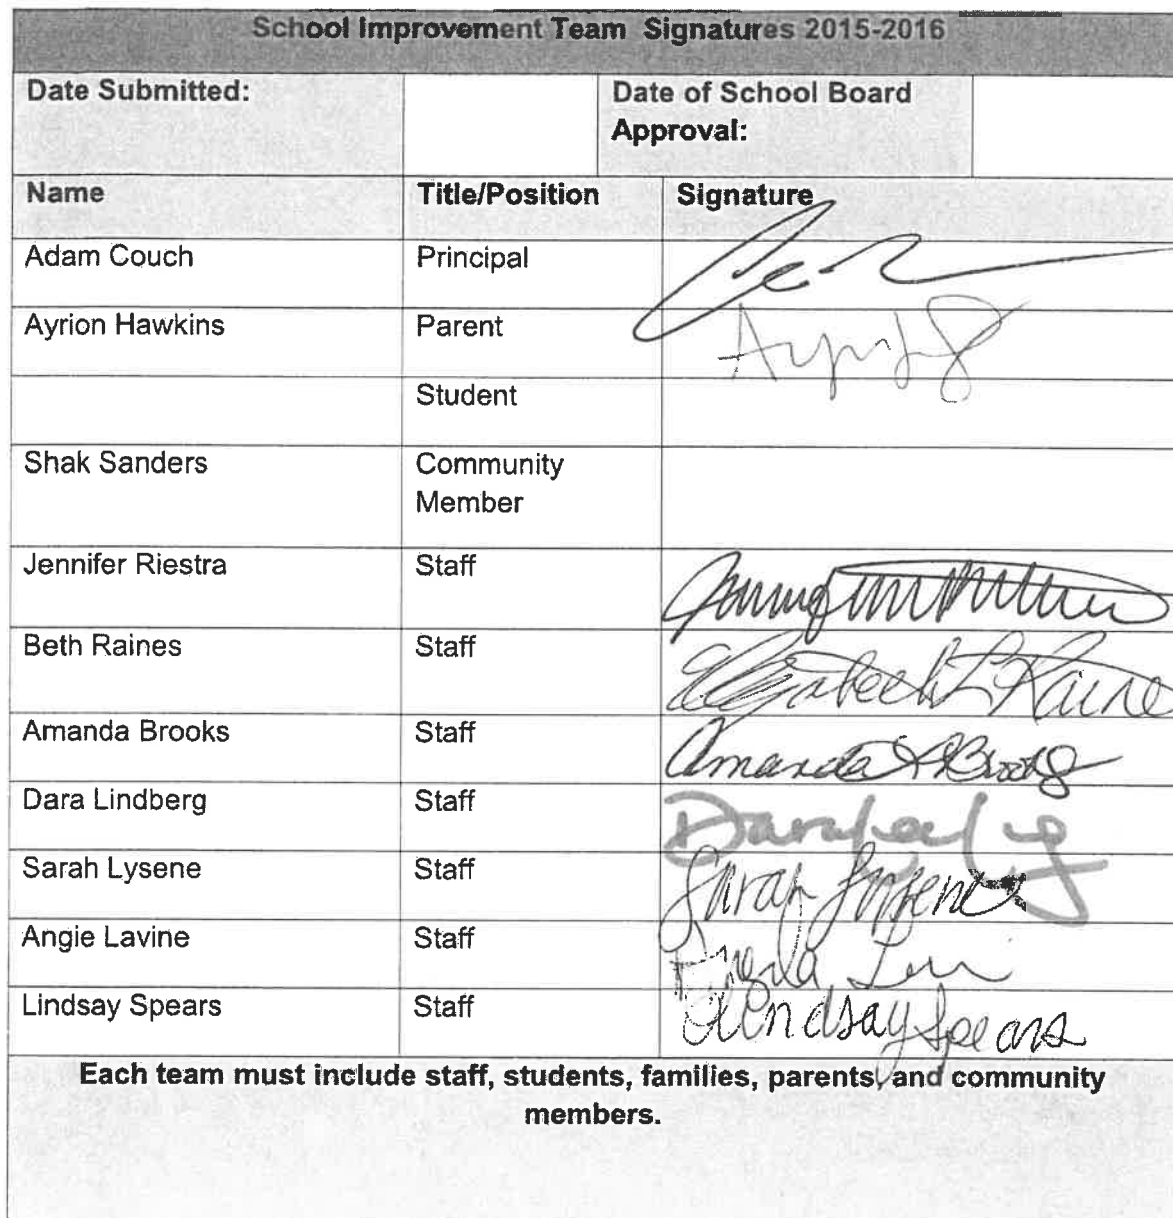 School Improvement Team Signatures 2015-2016
Date Submitted:
Date of School Board
Approval:
Name Title/Position Signature
Adam Couch Principal
Ayrion Hawkins Parent
Student
Shak Sanders Community
Member
Jennifer Riestra Staff
Beth Raines Staff Elizabeth L Raine
Amanda Brooks Staff Amanda Brooks
Dara Lindberg Staff Dara
Sarah Lysene Staff Sarah Lysene
Angie Lavine Staff Angela
Lindsay Spears Staff Lindsay Spears
Each team must include staff, students, families, parents, and community
members.